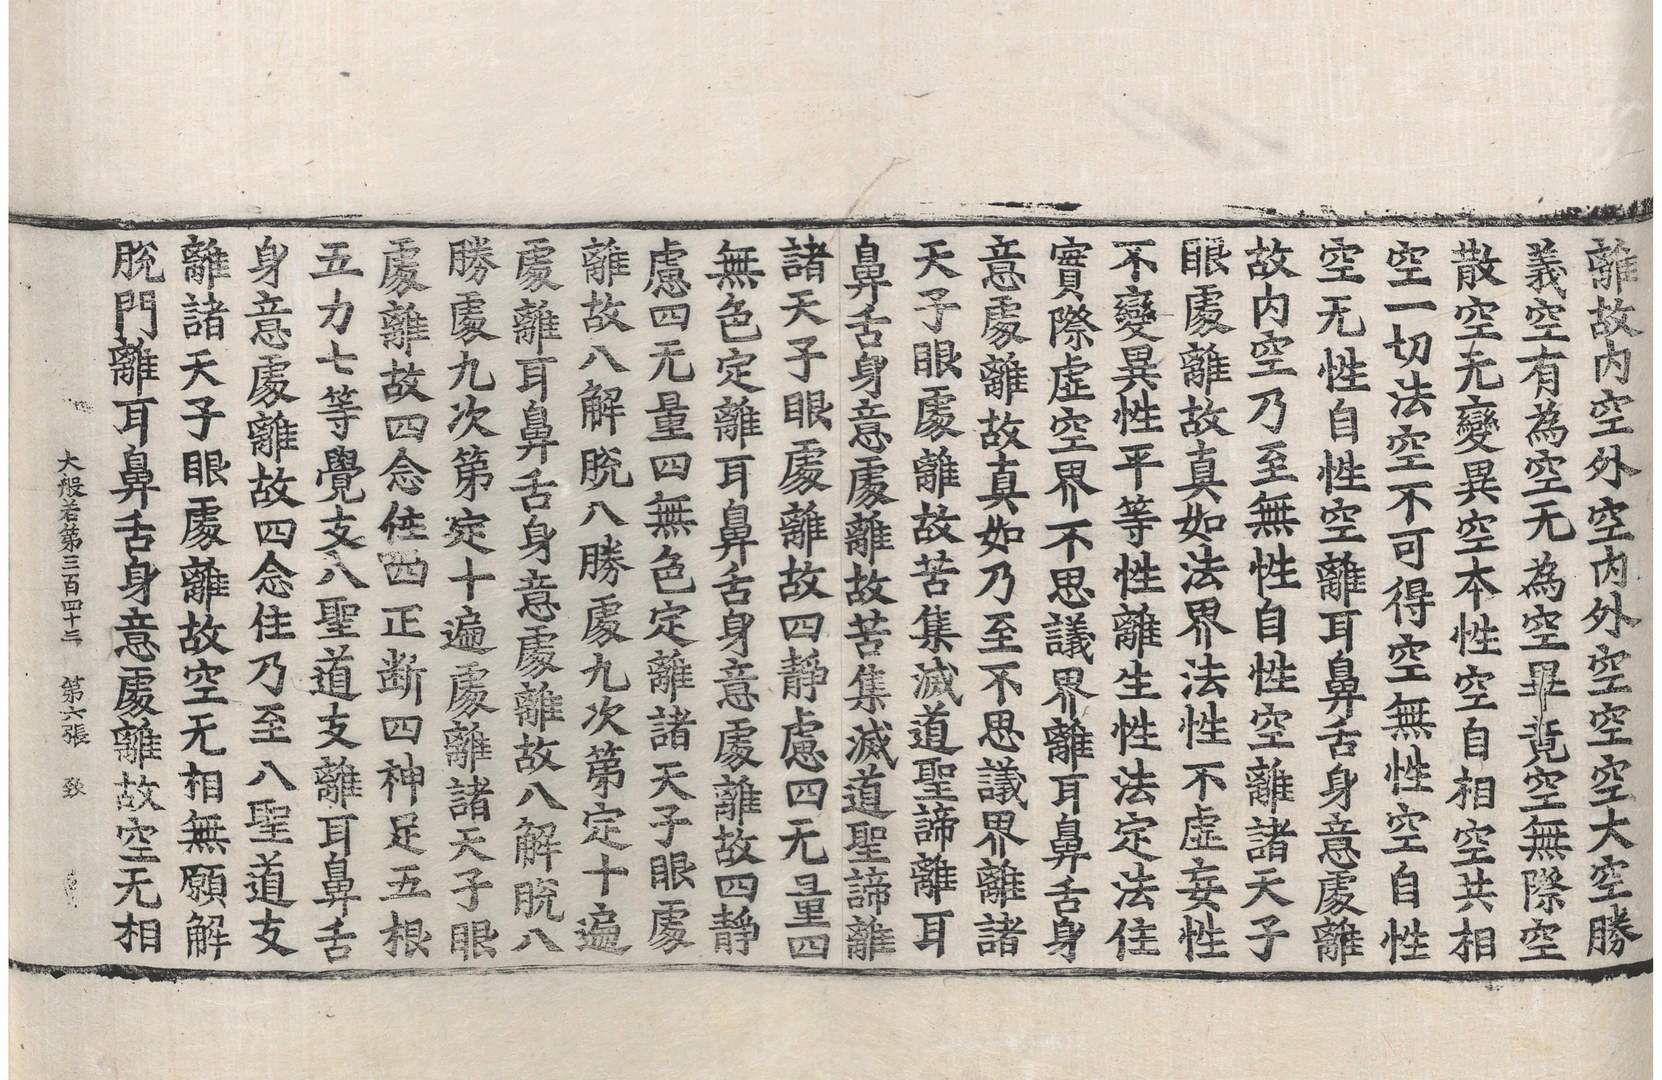 離故内空外空内外空空空大空勝
義空有為空无為空畢竟空無際空
散空无變異空本性空自相空共相
空一切法空不可得空無性空自性
空无性自性空離耳鼻舌身意處離
故内空乃至無性自性空離諸天子
眼處離故真如法界法性不虛妄性
不變異性平等性離生性法定法住
實際虛空界不思議界離耳鼻舌身
意處離故真如乃至不思議界離諸
天子眼處離故苦集滅道聖諦離耳
鼻舌身意處離故苦集滅道聖諦離
諸天子眼處離故四靜慮四无量四
無色定離耳鼻舌身意處離故四靜
慮四无量四無色定離諸天子眼處
離故八解脫八勝處九次第定十遍
處離耳鼻舌身意處離故八解脫八
勝處九次第定十遍處離諸天子眼
處離故四念住四正断四神足五根
五力七等覺支八聖道支離耳鼻舌
身意處離故四念住乃至八聖道支
離諸天子眼處離故空无相無願解
脫門離耳鼻舌身意處離故空无相
大般若第三百四十三 第六張 致